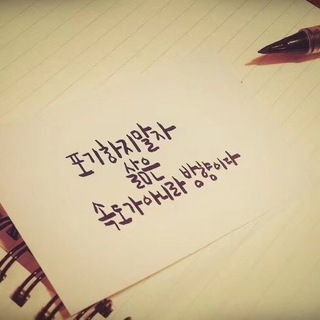 포기하지말자
삶은
속도가아니라 방향이다